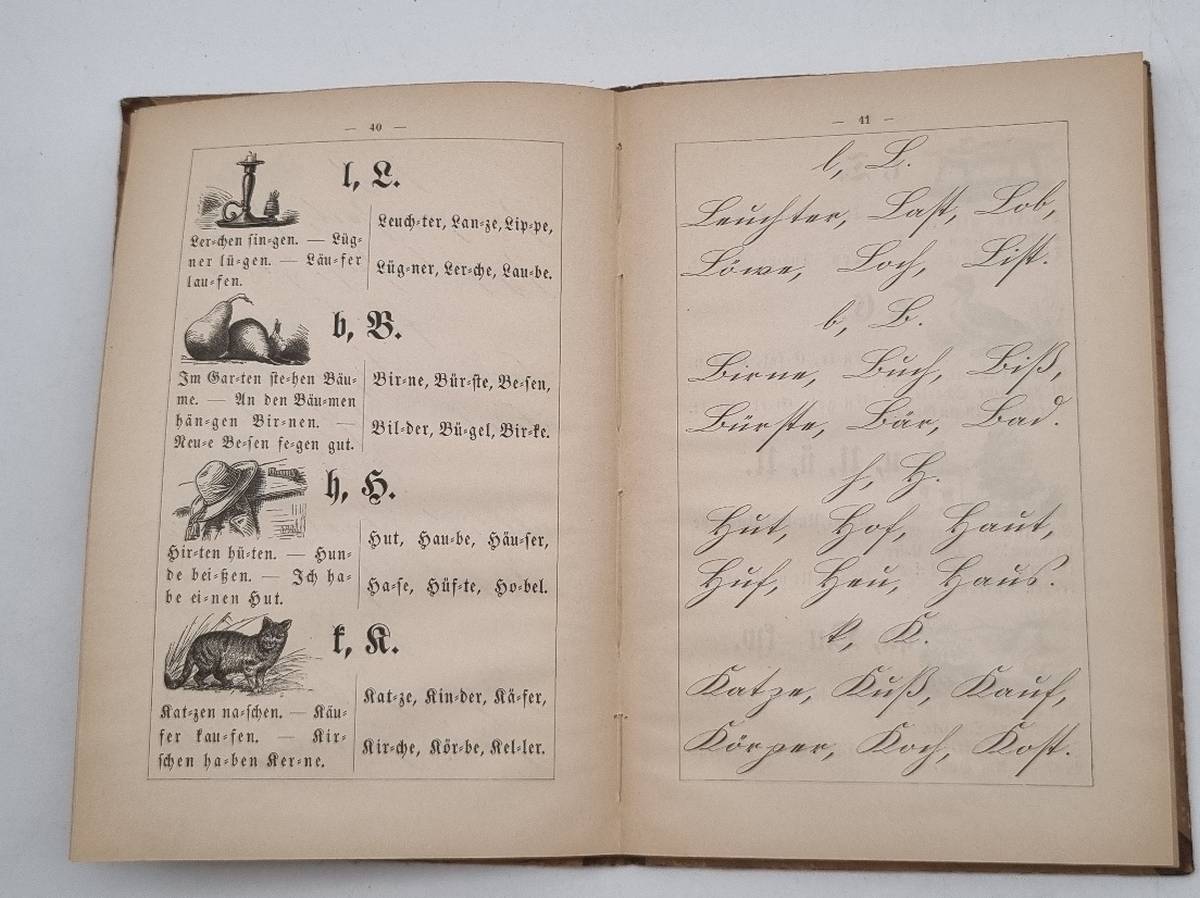 — 40 —
l, L.
Ler⸗chen sin⸗gen. — Lüg⸗
ner lü⸗gen. — Läu⸗fer
lau⸗fen.
Leuch⸗ter, Lan⸗ze, Lip⸗pe,
Lüg⸗ner, Ler⸗che, Lau⸗be.
b, B.
Im Gar⸗ten ste⸗hen Bäu⸗
me. — An den Bäu⸗men
hän⸗gen Bir⸗nen. —
Neu⸗e Be⸗sen fe⸗gen gut.
Bir⸗ne, Bür⸗ste, Be⸗sen,
Bil⸗der, Bü⸗gel, Bir⸗ke.
h, H.
Hir⸗ten hü⸗ten. — Hun⸗
de bei⸗ßen. — Ich ha⸗
be ei⸗nen Hut.
Hut, Hau⸗be, Häu⸗ser,
Ha⸗se, Hüf⸗te, Ho⸗bel.
k, K.
Kat⸗zen na⸗schen. — Käu⸗
fer kau⸗fen. — Kir⸗
schen ha⸗ben Ker⸗ne.
Kat⸗ze, Kin⸗der, Kä⸗fer,
Kir⸗che, Kör⸗be, Kel⸗ler.
— 41 —
l, L.
Leuchter, Last, Lob,
Löwe, Loch, List.
b, B.
Birne, Buch, Biß,
Bürste, Bär, Bad.
h, H.
Hut, Hof, Haut,
Huf, Heu, Haus.
k, K.
Katze, Kuß, Kauf,
Körper, Koch, Kost.